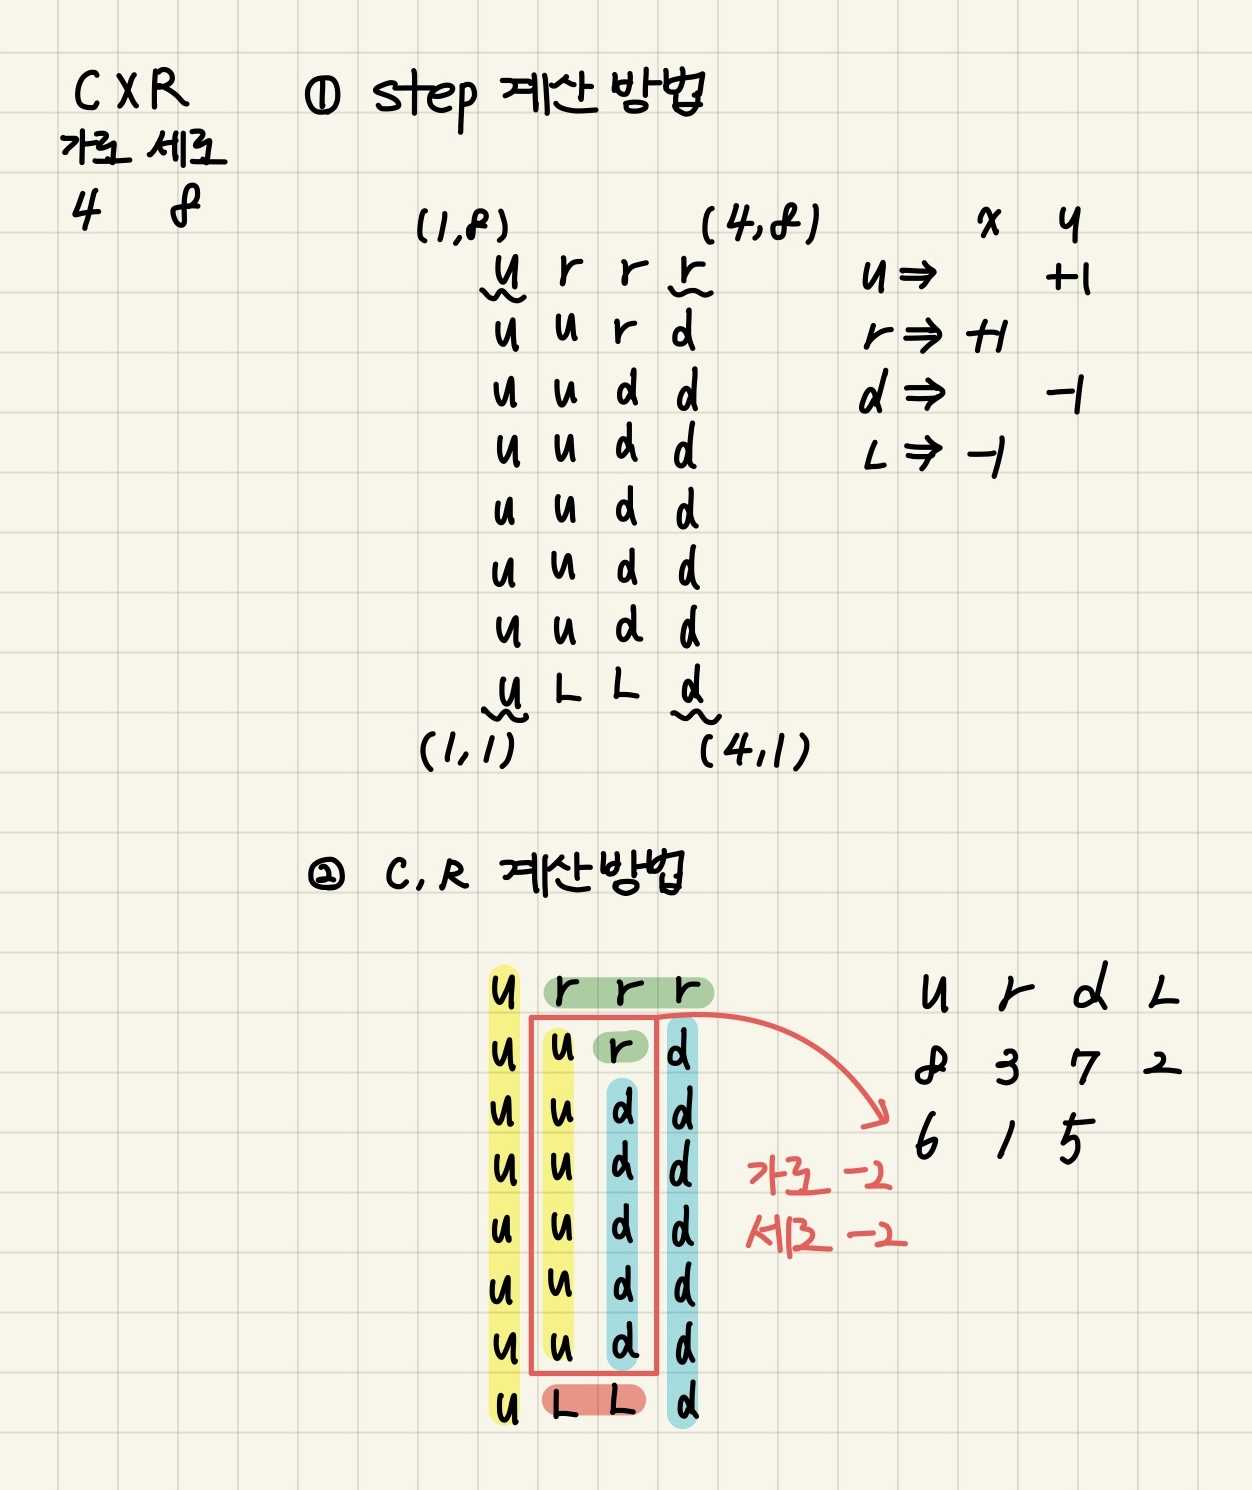 C X R
가로 세로
4 8
① step 계산 방법
(1,8) (4,8)
u r r r
u u r d
u u d d
u u d d
u u d d
u u d d
u u d d
u L L d
(1,1) (4,1)
x y
u ⇒ +1
r ⇒ +1
d ⇒ -1
L ⇒ -1
② C, R 계산방법
u r r r
u u r d
u u d d
u u d d
u u d d
u u d d
u u d d
u L L d
u r d L
8 3 7 2
6 1 5
가로 -2
세로 -2